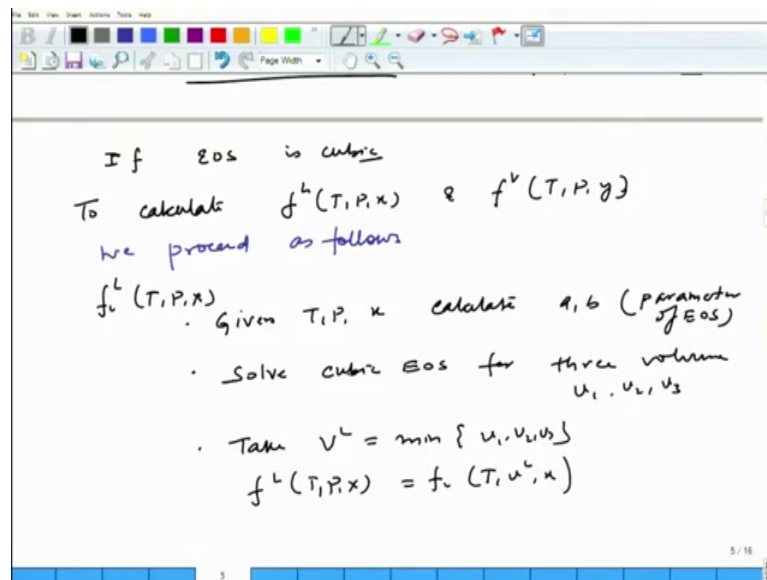 File Edit View Insert Actions Tools Help
B I
Page Width
If EOS is cubic
To calculate f^L (T, P, x) & f^V (T, P, y)
we proceed as follows
f_i^L (T, P, x)
· Given T, P, x calculate a, b (parameter of EOS)
· Solve cubic EOS for three volume
v_1, v_2, v_3
· Take V^L = min { v_1, v_2, v_3 }
f^L (T, P, x) = f_i (T, v^L, x)
5 / 16
5